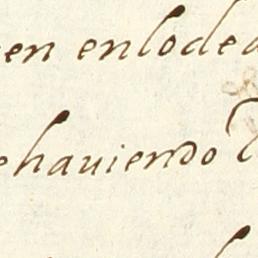 en enloded
ehaviendo